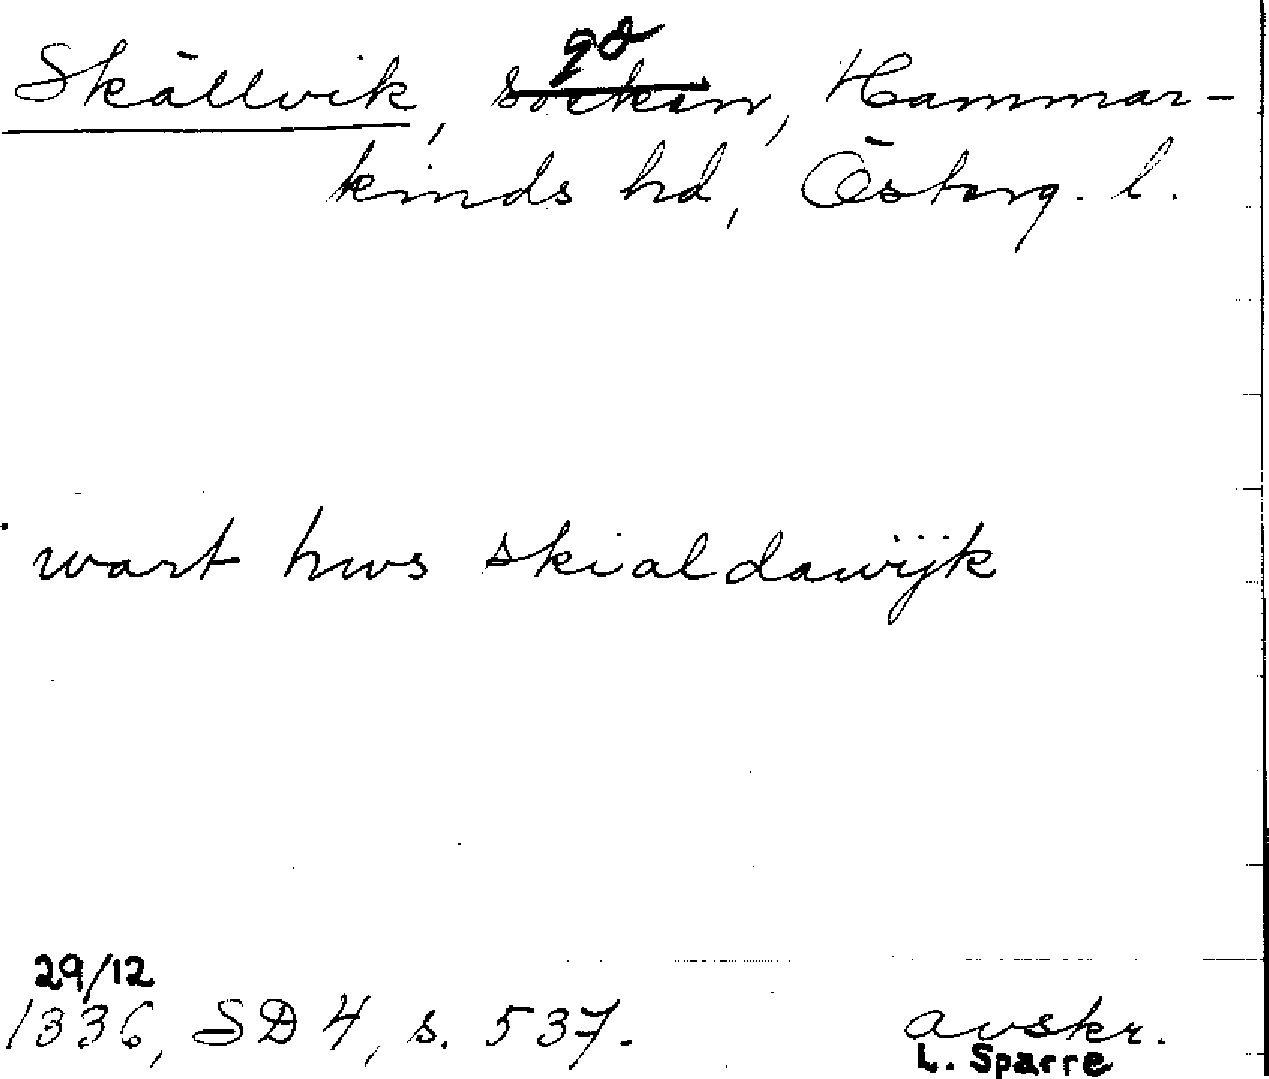 Skällvik, socken, Hammar-
gd
kinds hd, Österg. l.
wart hws skialdawijk
29/12
1336, SD 4, s. 537.
avskr.
L. Sparre